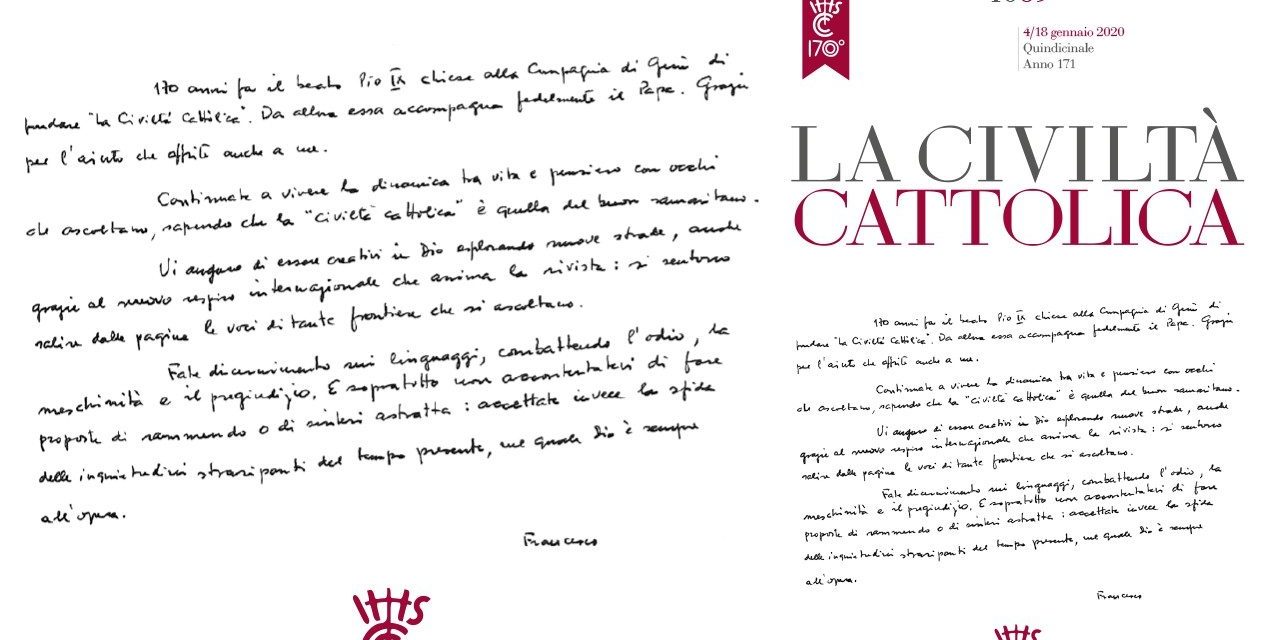 170 anni fa il beato Pio IX chiese alla Compagnia di Gesù di
fondare "La Civiltà Cattolica". Da allora essa accompagna fedelmente il Papa. Grazie
per l'aiuto che offrite anche a me.
Continuate a vivere la dinamica tra vita e pensiero con occhi
che ascoltano, sapendo che la "civiltà cattolica" è quella del buon samaritano.
Vi auguro di essere creativi in Dio esplorando nuove strade, anche
grazie al nuovo respiro internazionale che anima la rivista: si sentono
salire dalle pagine le voci di tante frontiere che si ascoltano.
Fate discernimento sui linguaggi, combattendo l'odio, la
meschinità e il pregiudizio. E soprattutto non accontentatevi di fare
proposte di rammendo o di sintesi astratta: accettate invece la sfida
delle inquietudini straripanti del tempo presente, nel quale Dio è sempre
all'opera.
Francesco
IHS
170°
4/18 gennaio 2020
Quindicinale
Anno 171
LA CIVILTÀ
CATTOLICA
170 anni fa il beato Pio IX chiese alla Compagnia di Gesù di
fondare "La Civiltà Cattolica". Da allora essa accompagna fedelmente il Papa. Grazie
per l'aiuto che offrite anche a me.
Continuate a vivere la dinamica tra vita e pensiero con occhi
che ascoltano, sapendo che la "civiltà cattolica" è quella del buon samaritano.
Vi auguro di essere creativi in Dio esplorando nuove strade, anche
grazie al nuovo respiro internazionale che anima la rivista: si sentono
salire dalle pagine le voci di tante frontiere che si ascoltano.
Fate discernimento sui linguaggi, combattendo l'odio, la
meschinità e il pregiudizio. E soprattutto non accontentatevi di fare
proposte di rammendo o di sintesi astratta: accettate invece la sfida
delle inquietudini straripanti del tempo presente, nel quale Dio è sempre
all'opera.
Francesco
IHS